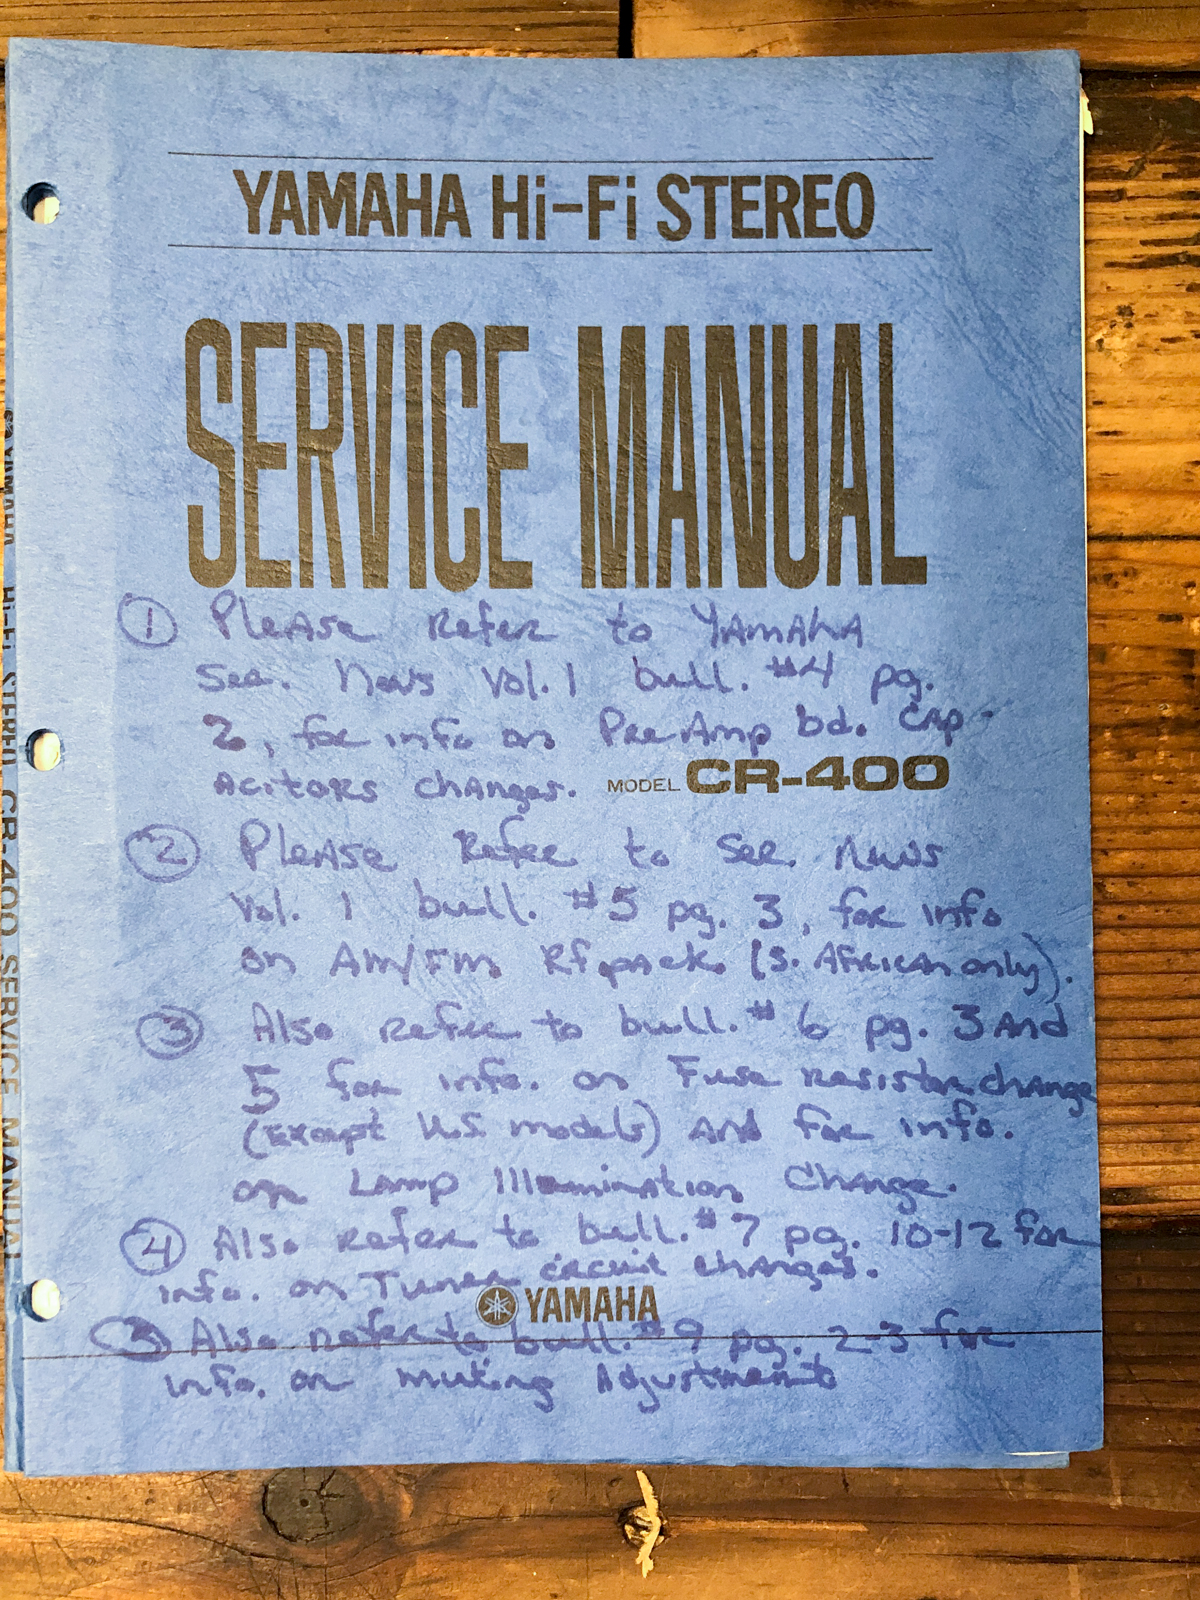 YAMAHA Hi-Fi STEREO
SERVICE MANUAL
① Please Refer to YAMAHA
Ser. News Vol. 1 bull. #4 pg.
2, for info on PreAmp bd. Cap-
acitors changes.
MODEL CR-400
② Please Refer to Ser. News
Vol. 1 bull. #5 pg. 3, for info
on AM/FM Rf pack. (S. African only).
③ Also refer to bull. #6 pg. 3 And
5 for info. on Fuse resistor change
(Except U.S models) and for info.
on Lamp Illumination Change.
④ Also refer to bull. #7 pg. 10-12 for
info. on Tuner circuit changes.
YAMAHA
⑤ Also refer to bull. #9 pg. 2-3 for
info. on muting Adjustment
YAMAHA Hi-Fi STEREO CR-400 SERVICE MANUAL